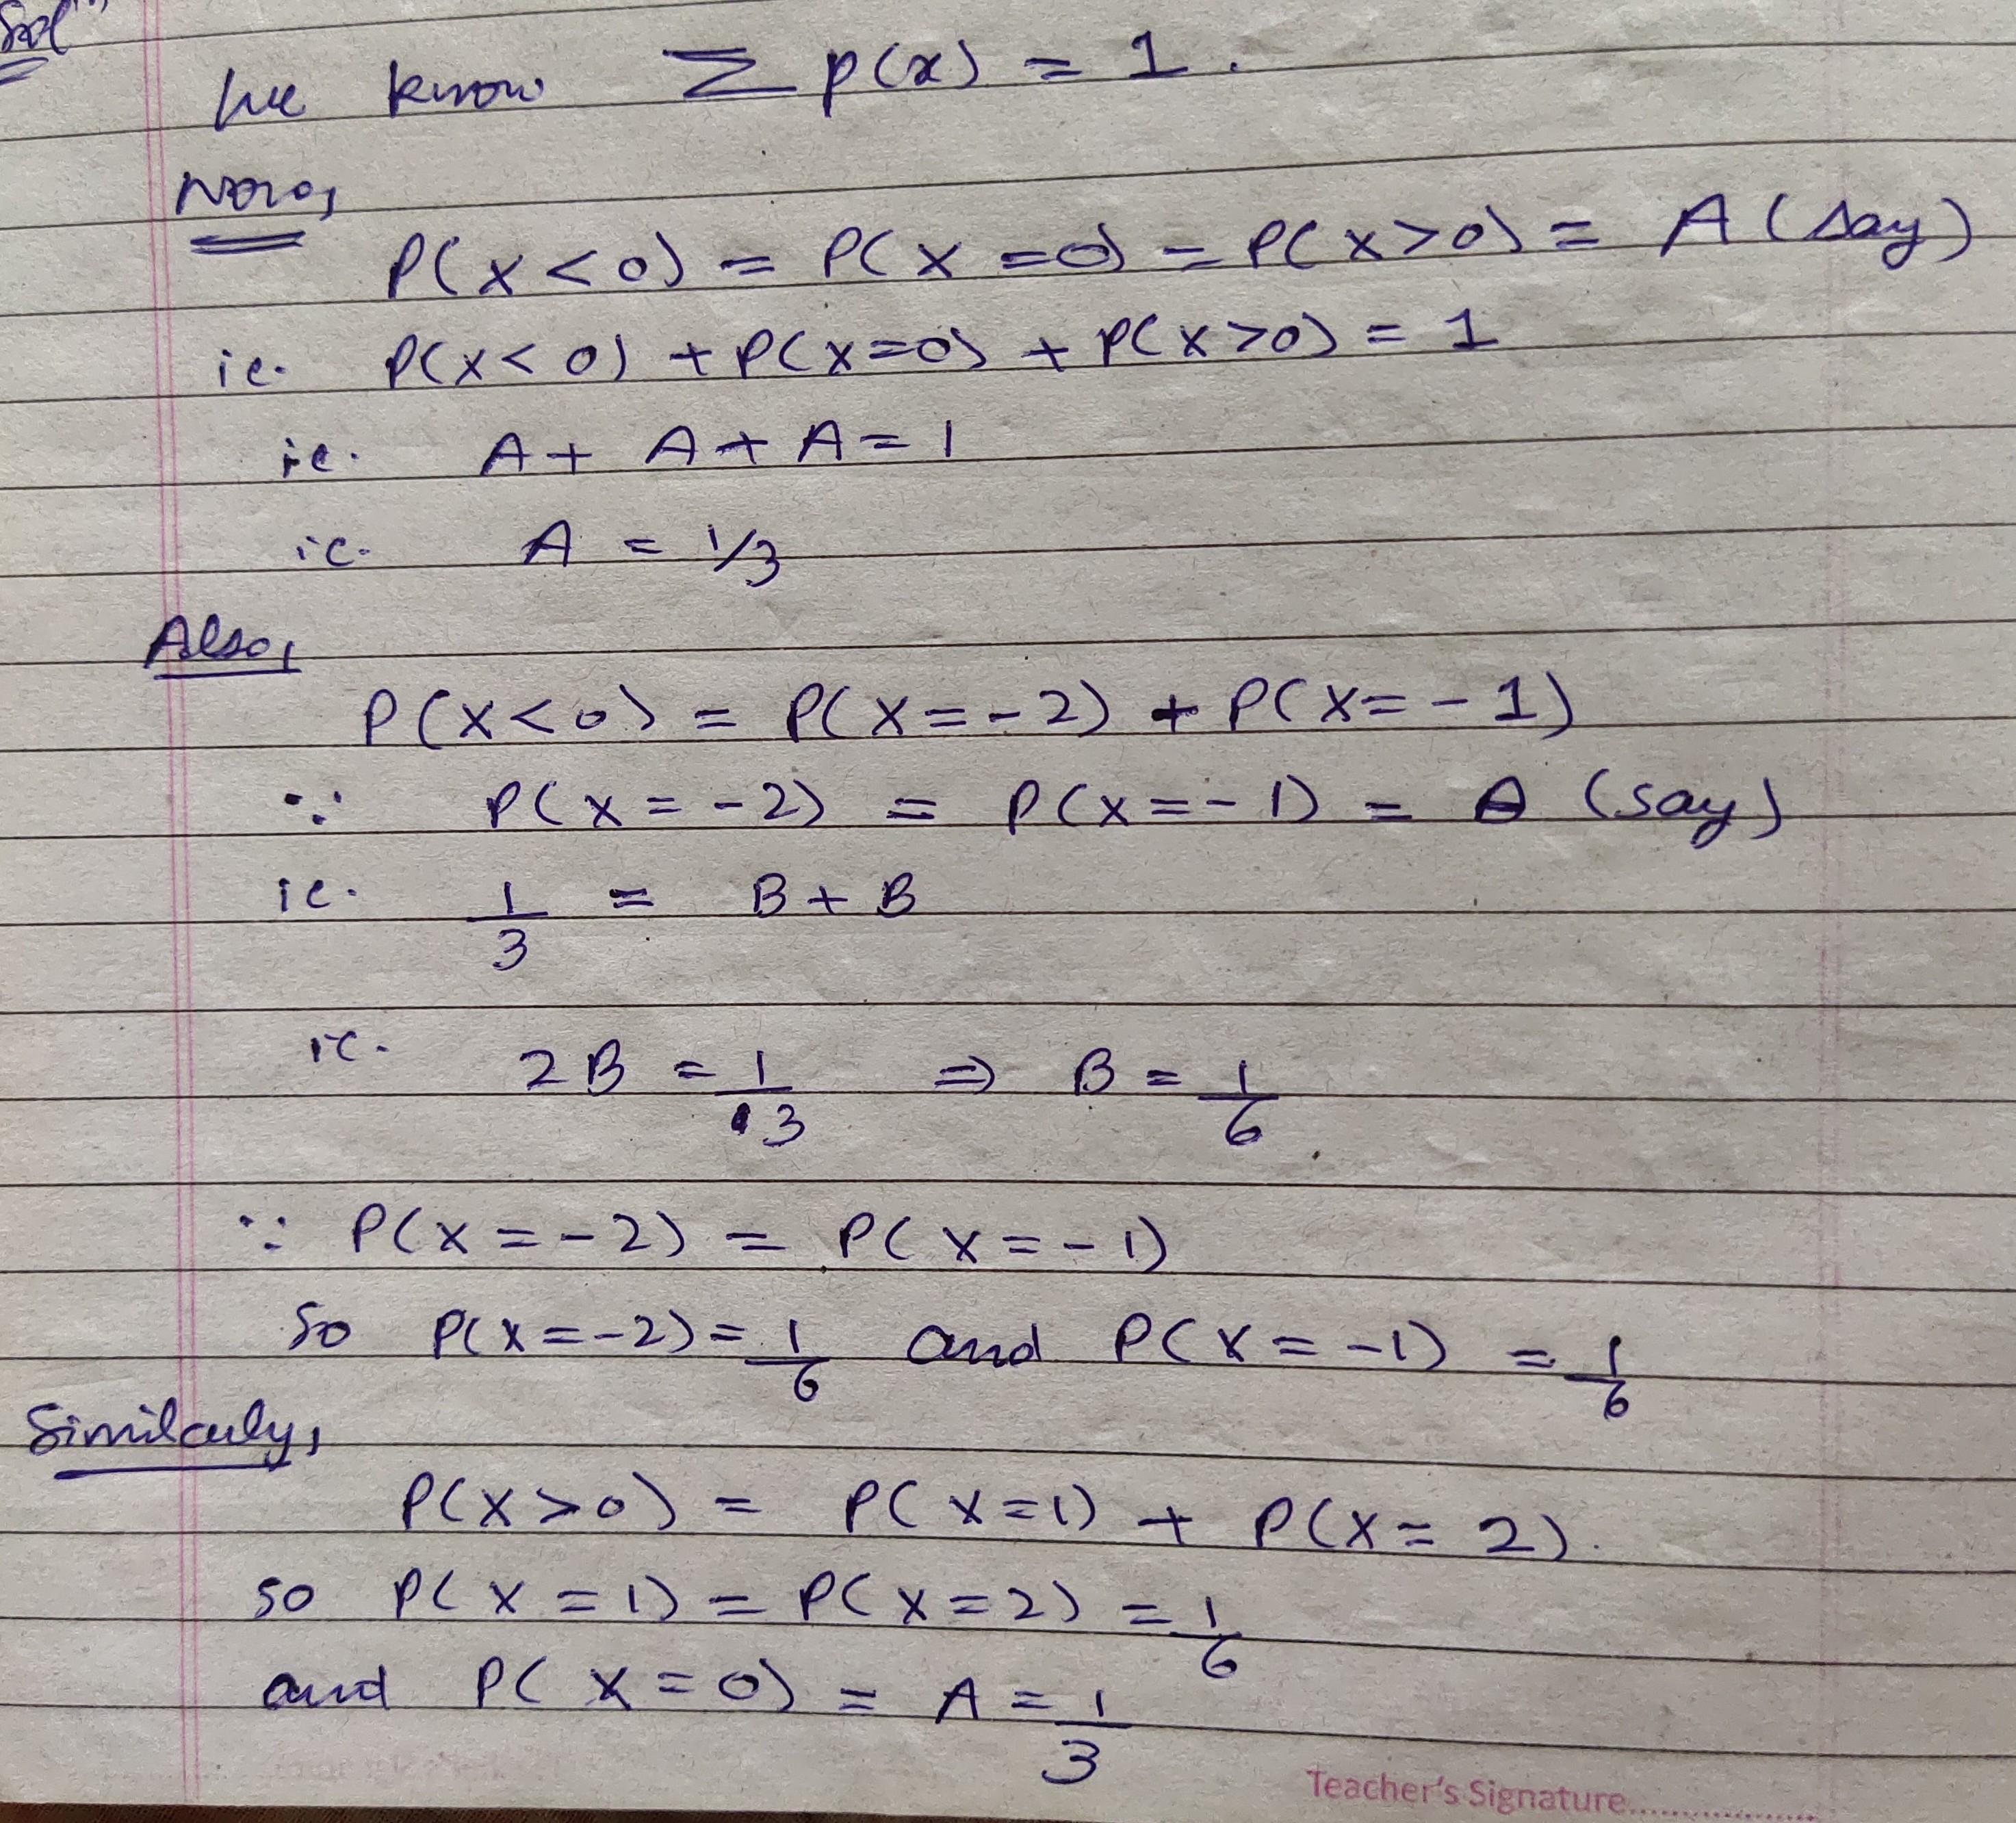 Solⁿ
We know Σ p(x) = 1.
Now,
P(X<0) = P(X=0) = P(X>0) = A (say)
ie. P(X<0) + P(X=0) + P(X>0) = 1
ie. A + A + A = 1
ie. A = 1/3
Also,
P(X<0) = P(X=-2) + P(X=-1)
∵ P(X=-2) = P(X=-1) = B (say)
ie. 1/3 = B + B
ie. 2B = 1/3 ⇒ B = 1/6
∵ P(X=-2) = P(X=-1)
So P(X=-2) = 1/6 and P(X=-1) = 1/6
Similarly,
P(X>0) = P(X=1) + P(X=2).
so P(X=1) = P(X=2) = 1/6
and P(X=0) = A = 1/3
Teacher's Signature..................